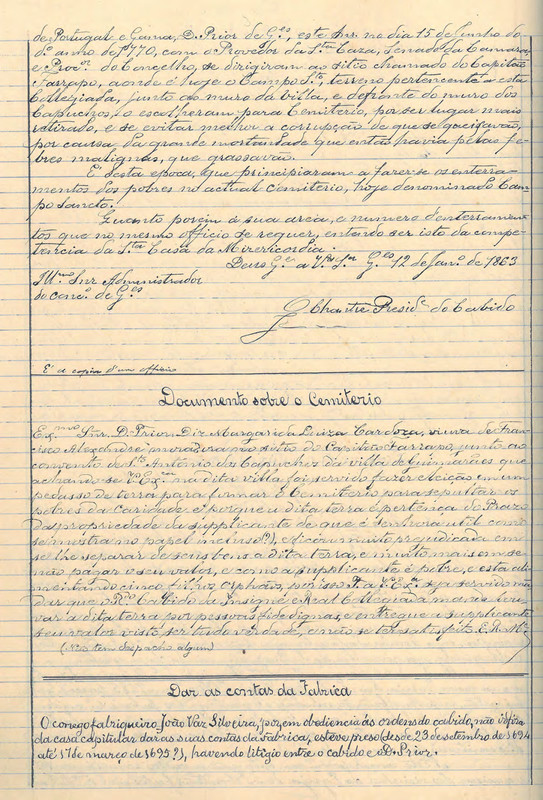 de Portugal e Gama, D. Prior de G.es, este Snr. no dia 15 de Junho do
d.o anno de 1770, com o Provedor da S.ta Caza, Senado da Camara,
e Proc.or do Concelho, se dirigiram ao sitio chamado do Capitão
Farrapo, aonde é hoje o Campo S.to, terreno pertencente a esta
Collegiada, junto ao muro da Villa, e defronte do muro dos
Capuchos, o escolheram para Cemiterio, por ser lugar mais
retirado, e se evitar melhor a corrupção de que se queixavão,
por causa da grande mortandade que então havia pelas fe-
bres malignas, que grassavão.
É desta epoca, que principiaram a fazer-se os enterra-
mentos dos pobres no actual cemiterio, hoje denominado Cam-
po Sancto.
Quanto porém á sua area, e numero d'enterramen-
tos que no mesmo officio se requer, entendo ser isto da compe-
tencia da S.ta Casa da Misericordia.
Deus G.e a V. S.a G.es 12 de Jan.o de 1863
Ill.mo Snr. Administrador
do conc.o de G.es
O Chantre Presid.e do Cabido
É a copia d'um officio
Documento sobre o Cemiterio
Ex.mo Snr. D. Prior. Diz Margarida Luiza Cardoza, viuva de Fran-
cisco Alexandre moradora no sitio do Capitão Farrapo, junto ao
convento de S.to Antonio dos Capuchos da villa de Guimarães que
achando-se V. Ex.a na dita villa foi servido fazer eleição em um
pedasso de terra para formar o Cemiterio para sepultar os
pobres da Caridade e porque a dita terra é pertença do Prazo
da propriedade da supplicante de que é senhora util como
se mostra no papel incluso, e ficou muito prejudicada em
se lhe separar de seus bens a dita terra, e muito mais em se
não pagar o seu valor, e como a supplicante é pobre, e está ali-
mentando cinco filhos orphãos, por isso P. a V. Ex.a seja servido man-
dar que o R.do Cabido da Insigne e Real Collegiada mande lou-
var a dita terra por pessoas fidedignas, e entregue a supplicante
seu valor visto ser tudo verdade, e não se ter satisfeito. E. R. M.ce
(Não tem despacho algum)
Dar as contas da Fabrica
O conego fabriqueiro João Vaz Silveira, por, em obediencia ás ordens do cabido, não ir fóra
da casa capitular dar as suas contas da Fabrica, esteve preso (desde 23 de setembro de 1694
até 17 de março de 1695?), havendo litigio entre o cabido e o D. Prior.